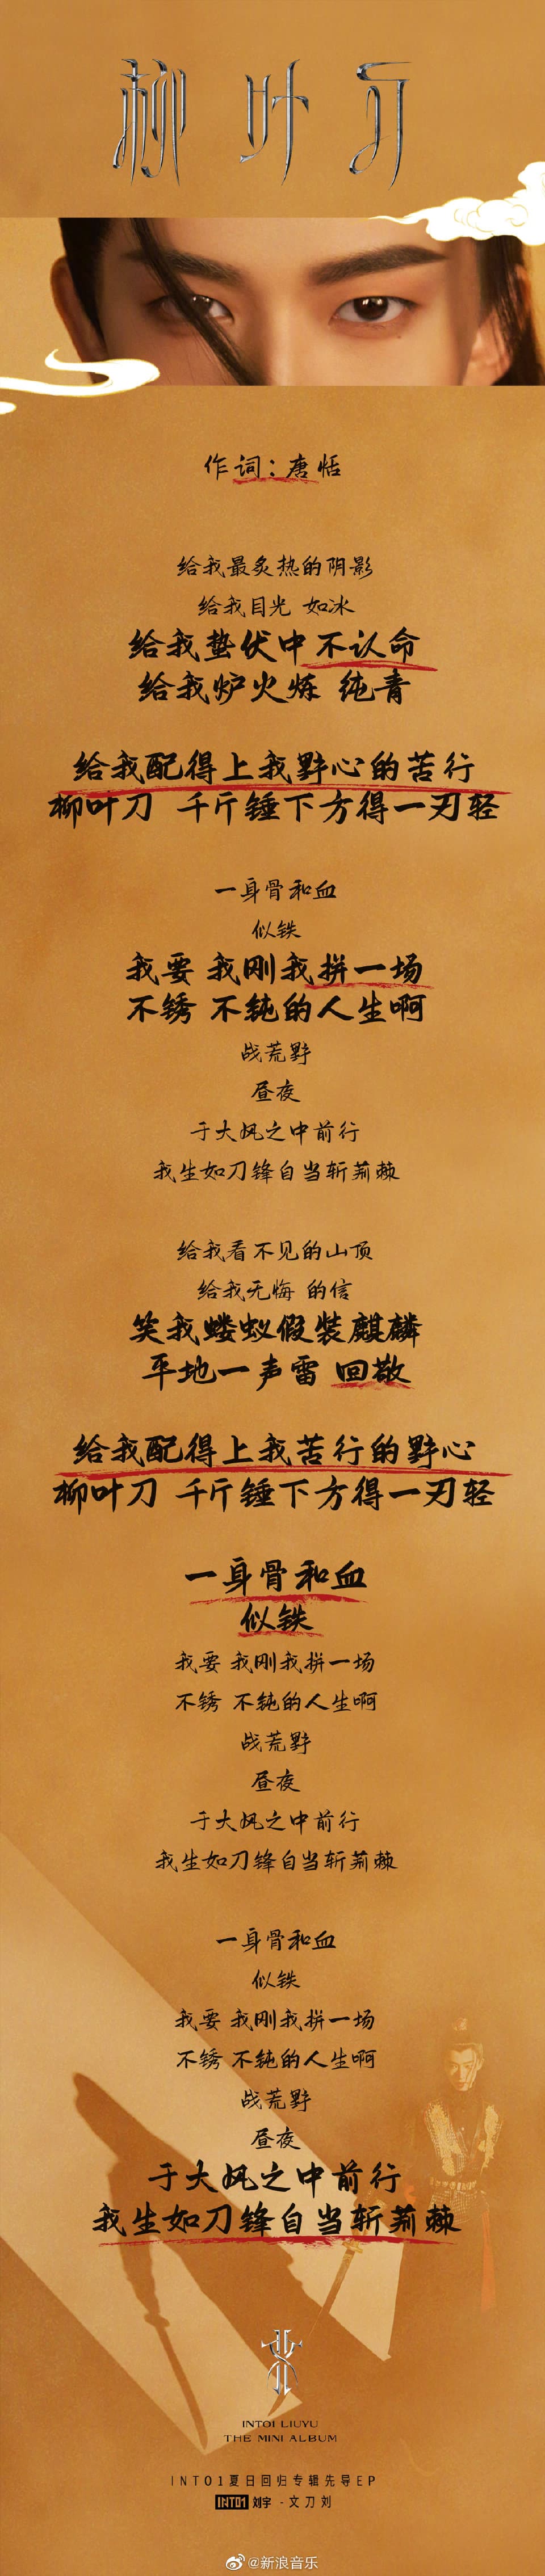 柳叶刀
作词：唐恬
给我最炙热的阴影
给我目光 如冰
给我蛰伏中不认命
给我炉火炼 纯青
给我配得上我野心的苦行
柳叶刀 千斤锤下方得一刃轻
一身骨和血
似铁
我要 我刚我拼一场
不锈 不钝的人生啊
战荒野
昼夜
于大风之中前行
我生如刀锋自当斩荆棘
给我看不见的山顶
给我无悔 的信
笑我蝼蚁假装麒麟
平地一声雷 回敬
给我配得上我苦行的野心
柳叶刀 千斤锤下方得一刃轻
一身骨和血
似铁
我要 我刚我拼一场
不锈 不钝的人生啊
战荒野
昼夜
于大风之中前行
我生如刀锋自当斩荆棘
一身骨和血
似铁
我要 我刚我拼一场
不锈 不钝的人生啊
战荒野
昼夜
于大风之中前行
我生如刀锋自当斩荆棘
INTO1 LIUYU
THE MINI ALBUM
INTO1夏日回归专辑先导EP
INTO1 刘宇 - 文刀刘
@新浪音乐